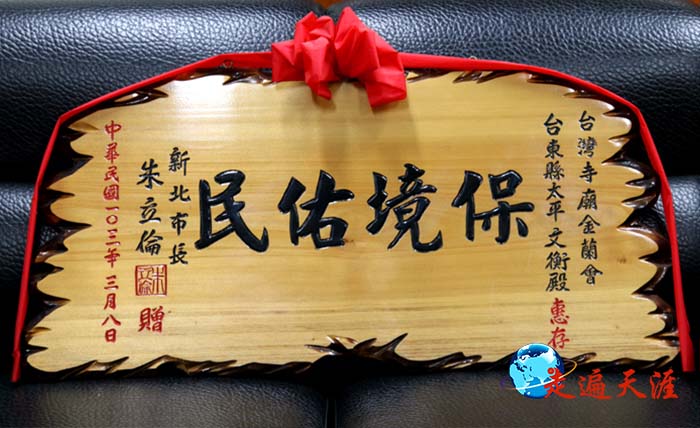 台灣寺廟金蘭會
台東縣太平文衡殿 惠存
保境佑民
新北市長
朱立倫 朱立倫 贈
中華民國一〇三年三月八日
走遍天涯